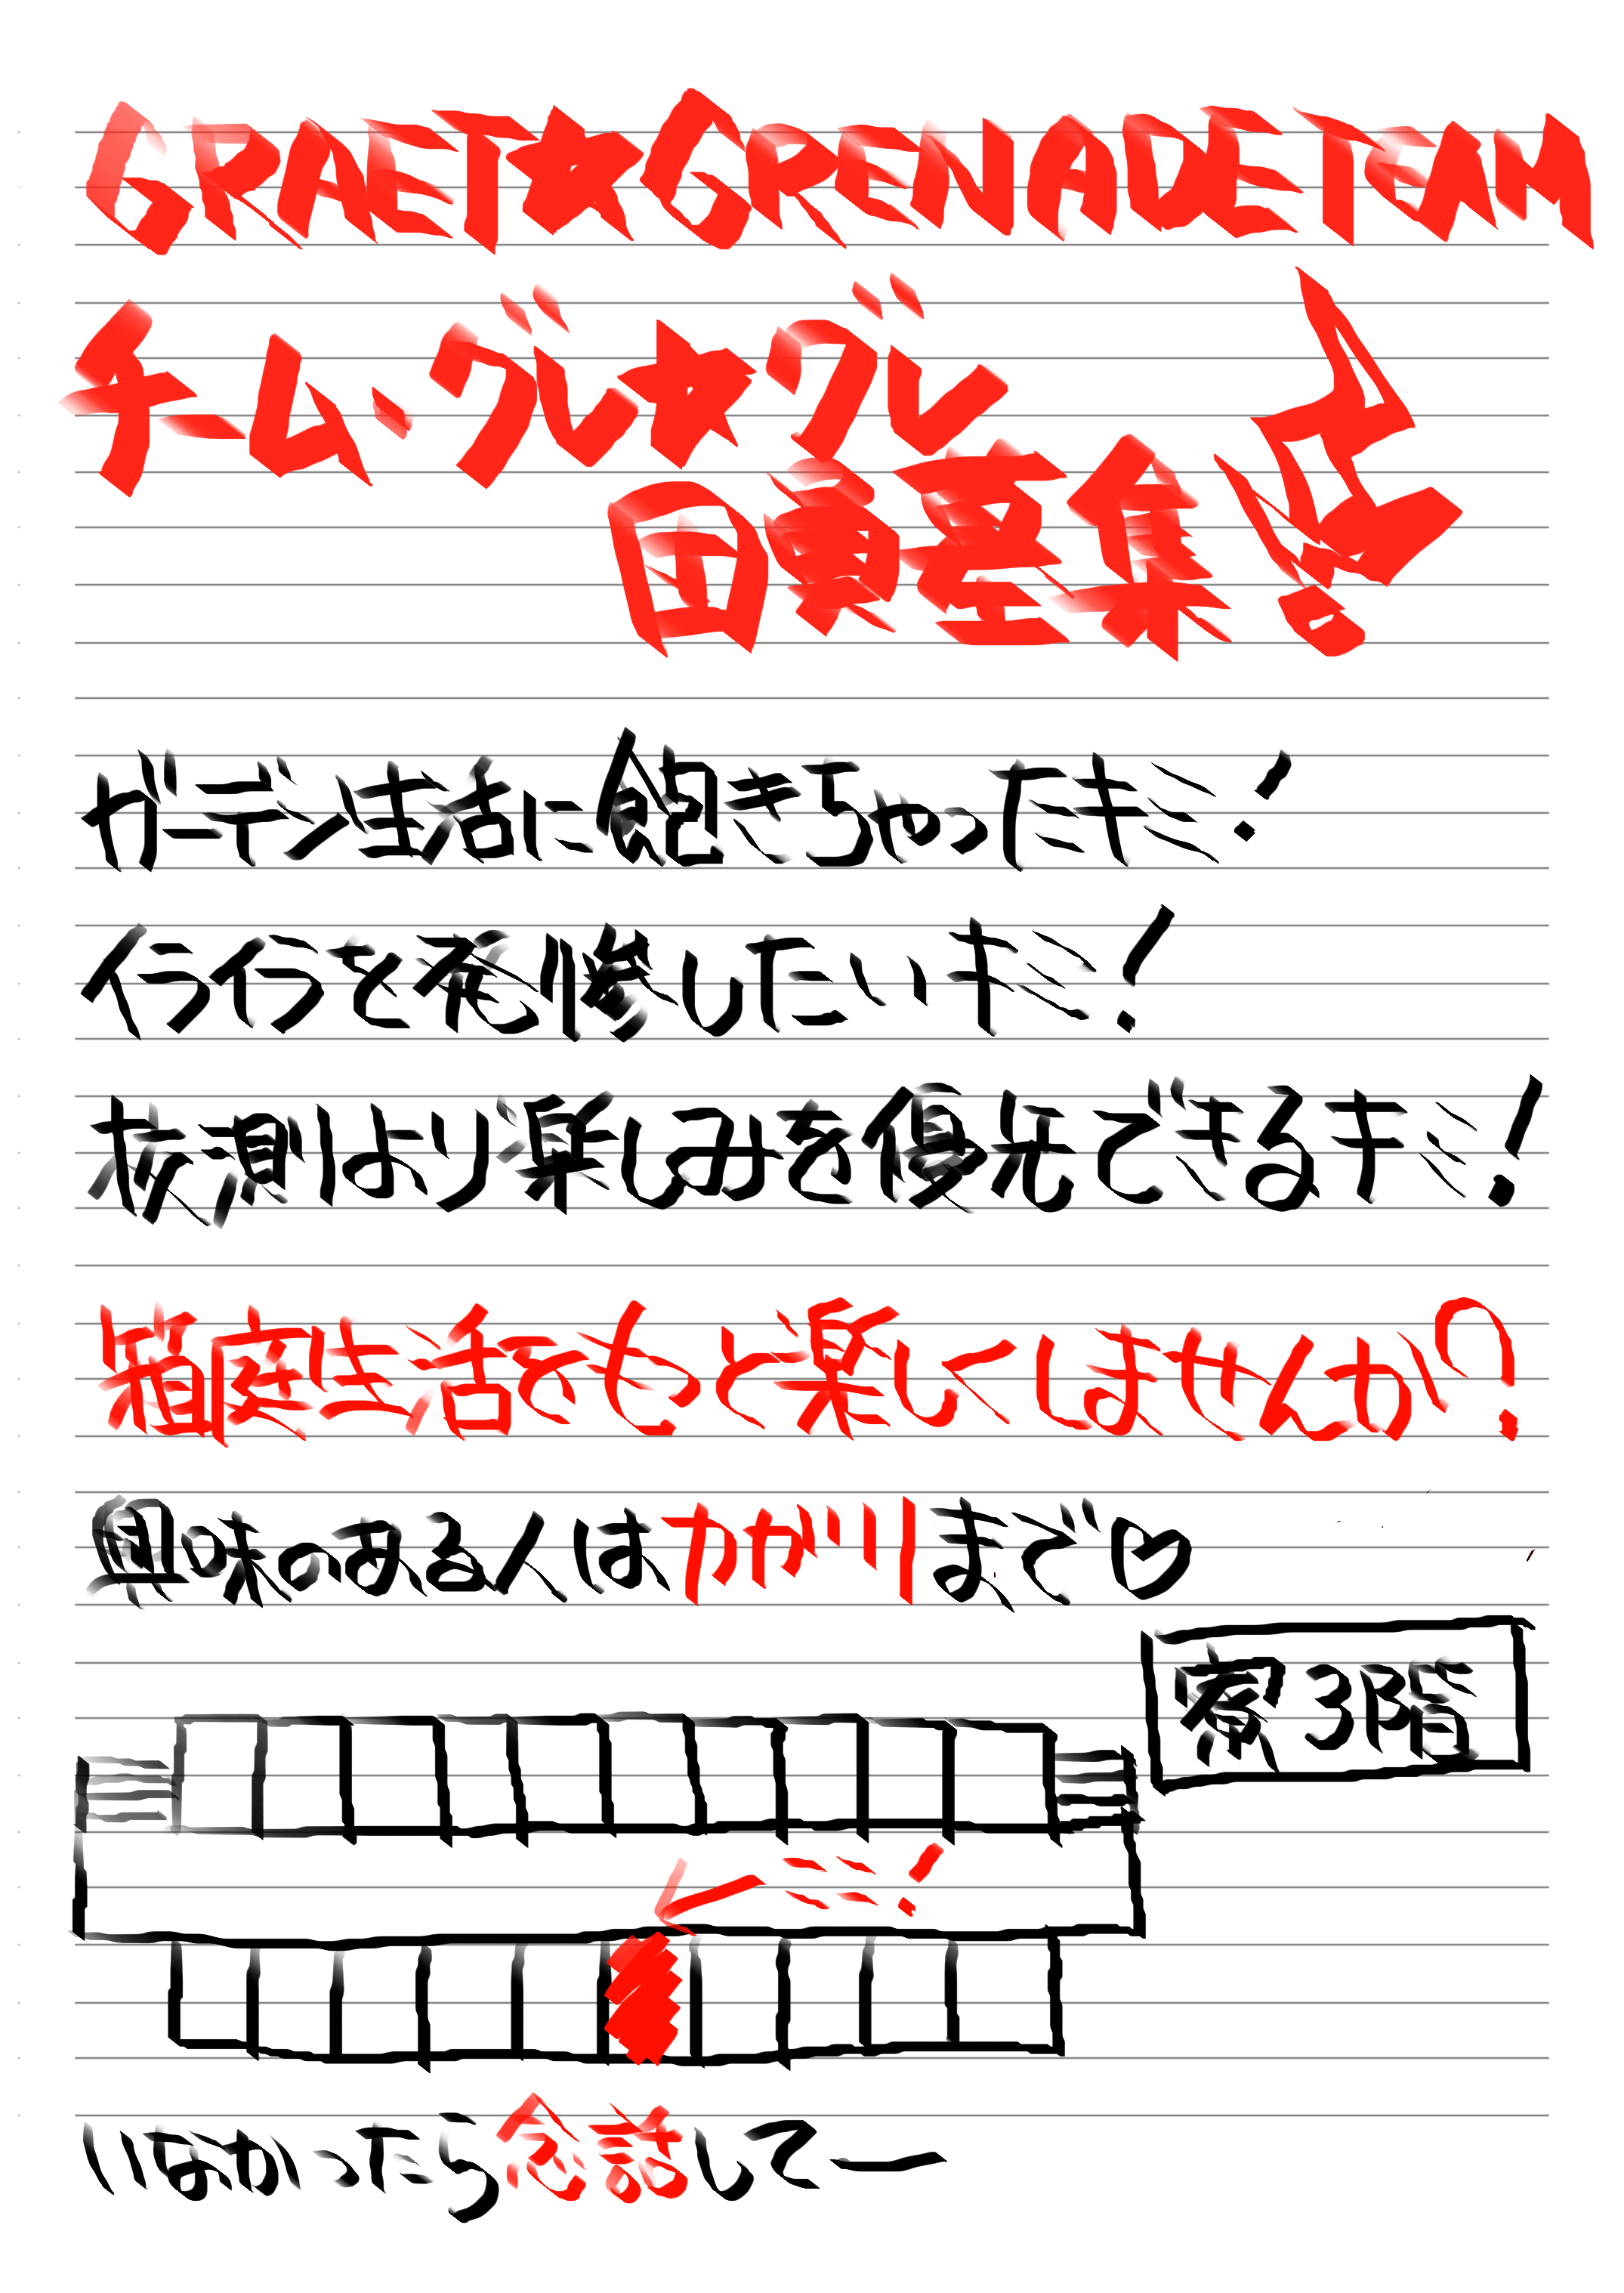 GRAET★GRENADE TEAM
チーム・グレ★グレ
団員募集!
ガーデン生活に飽きちゃったキミ!
イライラを発惨したいキミ!
より楽しみを優先できるキミ!
箱庭生活をもっと楽しくしませんか?
興味のある人はカガリまで♡
寮3階
ここ!
いなかったら念話してー